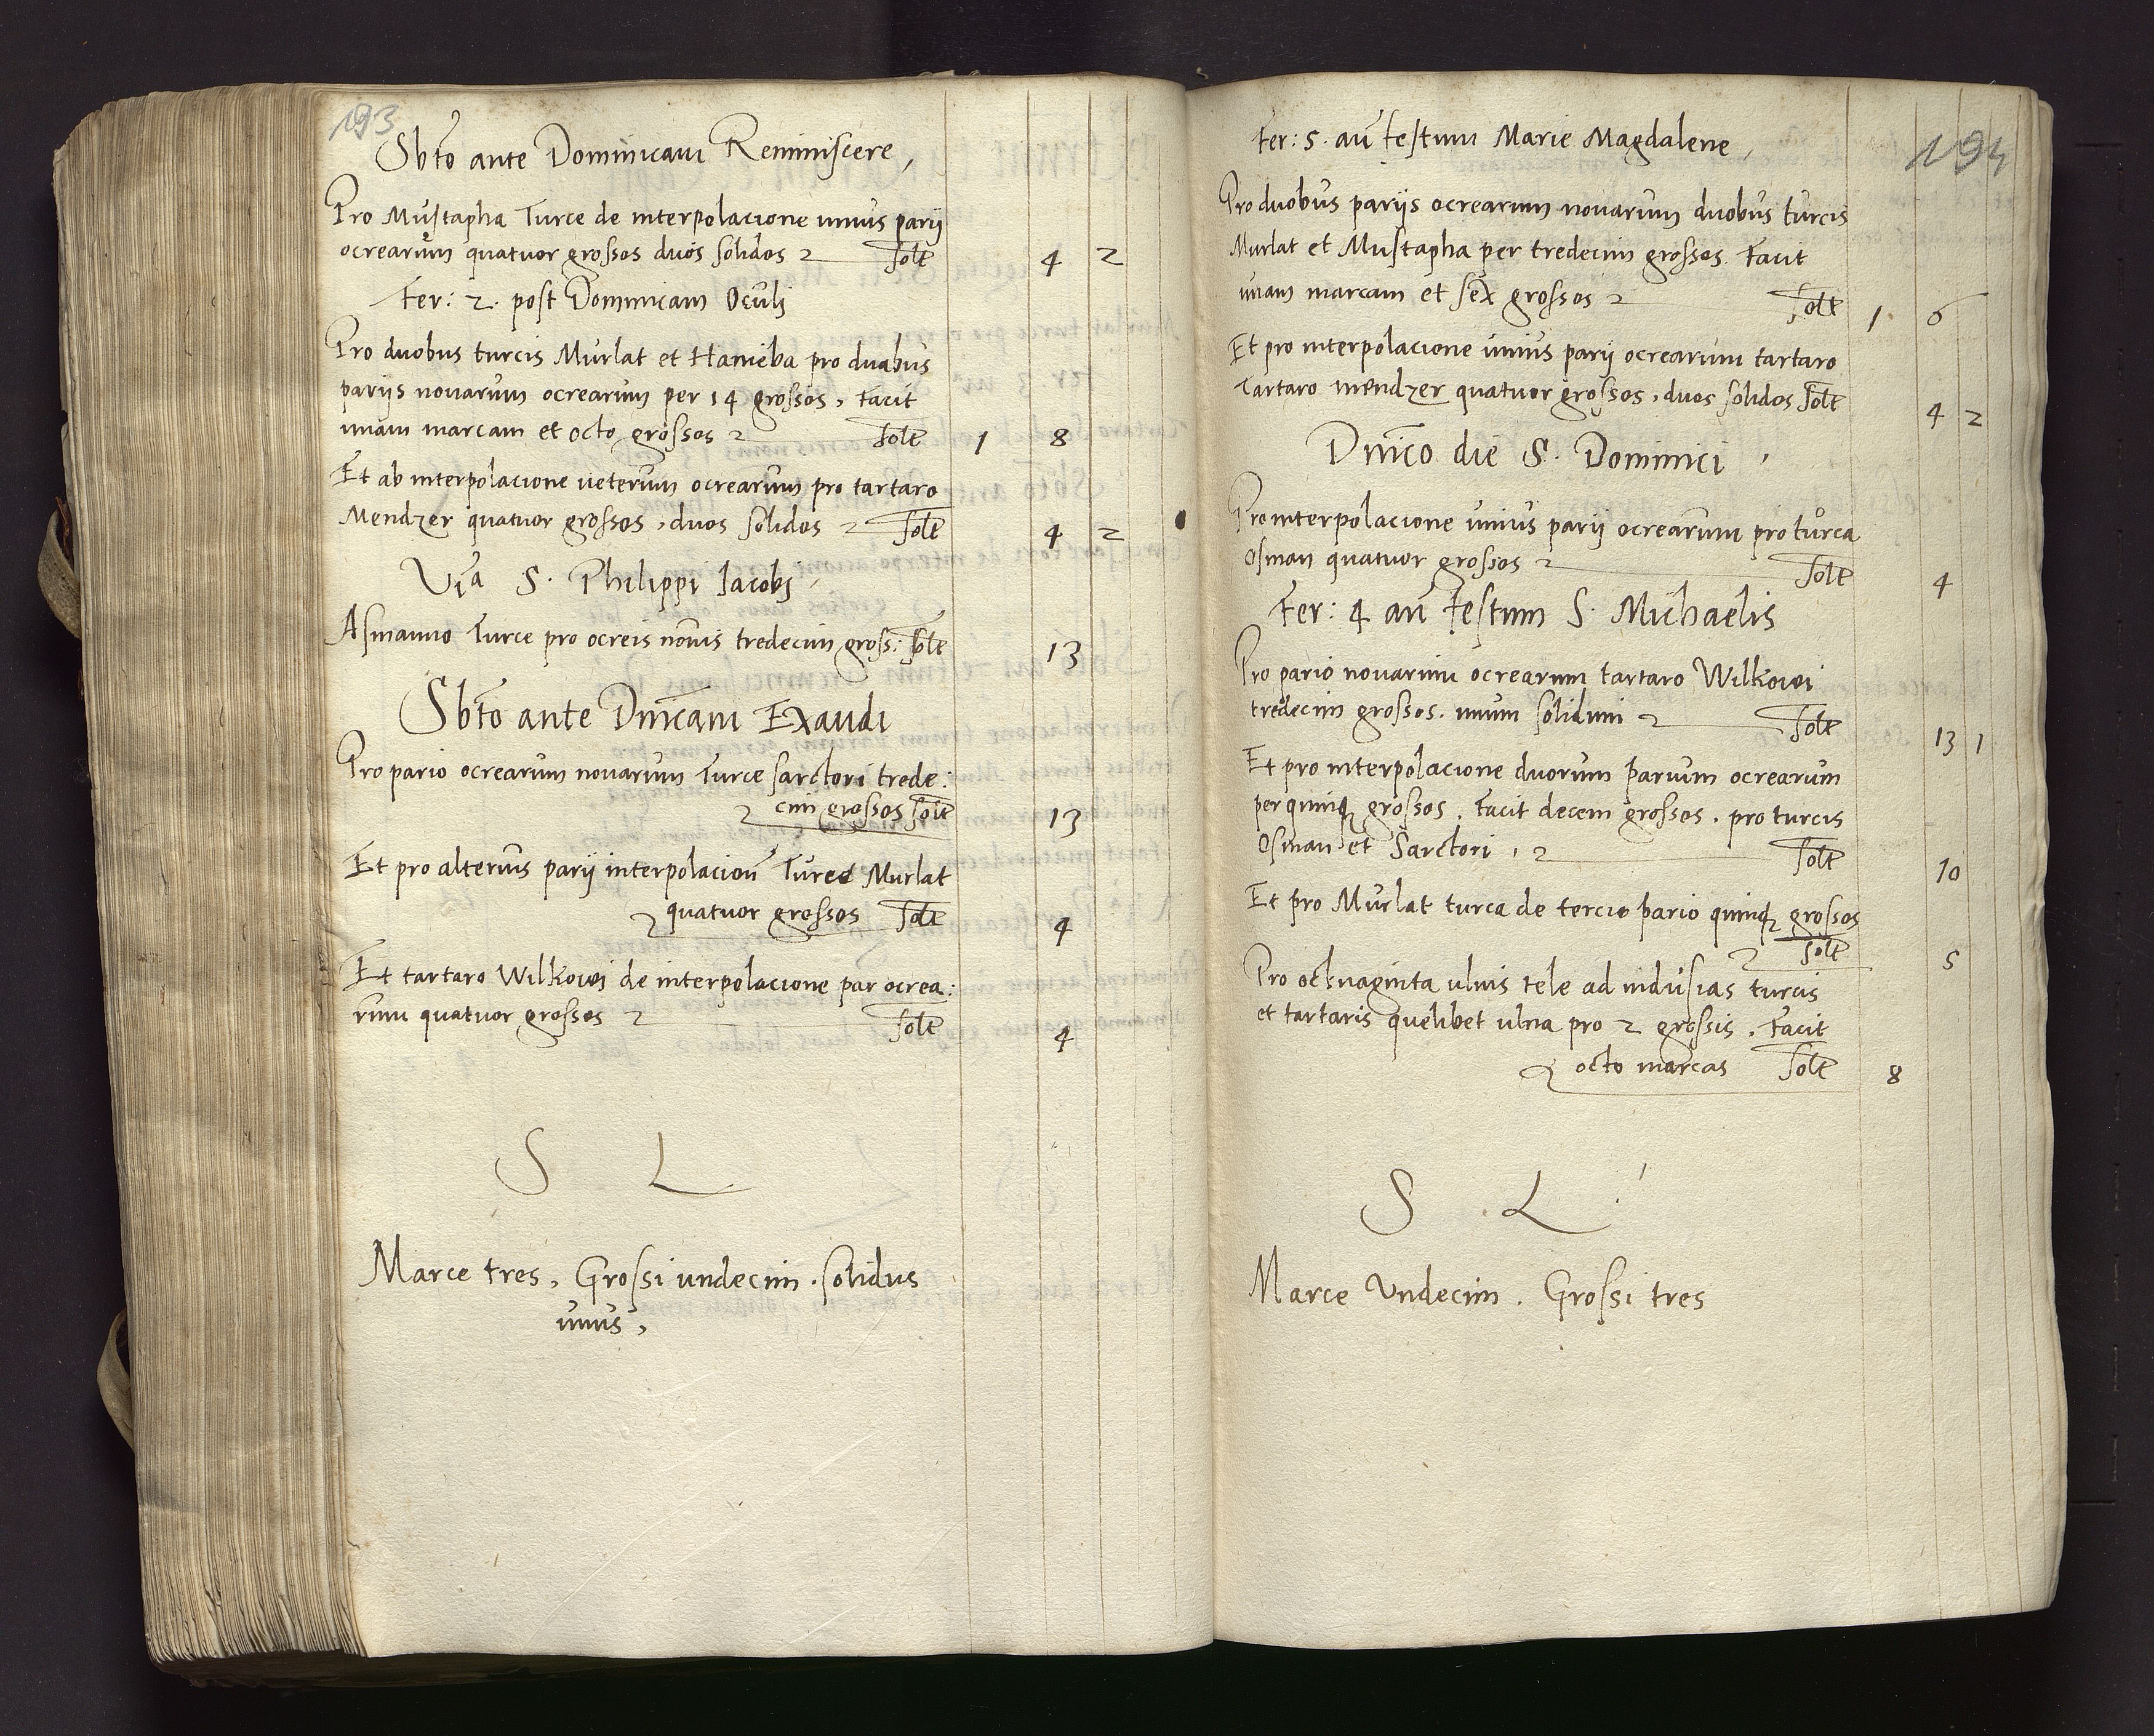 193
Sbto ante Dominicam Reminiscere,
Pro Mustapha Turce de interpolacione unius parij
ocrearum quatuor grossos duos solidos solt 4 2
Fer: 2. post Dominicam Oculi
Pro duobus turcis Murlat et Hanieba pro duabus
parijs novarum ocrearum per 14 grossos, facit
unam marcam et octo grossos solt 1 8
Et ab interpolacione veterum ocrearum pro tartaro
Mendzer quatuor grossos, duos solidos solt 4 2
Via S. Philippi Jacobi
Asmanno Turce pro ocreis novis tredecim gross: solt 13
Sbto ante Dnicam Exaudi
Pro pario ocrearum novarum Turce sarctori trede:
cim grossos solt 13
Et pro alterius parij interpolacion Turce Murlat
quatuor grossos solt 4
Et tartaro Wilkowi de interpolacione par ocrea:
rum quatuor grossos solt 4
S L
Marce tres, Grossi undecim. solidus
unus,
194
Fer: 5. an festum Marie Magdalene,
Pro duobus parijs ocrearum novarum duobus turcis
Murlat et Mustapha per tredecim grossos. Facit
unam marcam et sex grossos solt 1 6
Et pro interpolacione unius parij ocrearum tartaro
Tartaro mendzer quatuor grossos, duos solidos solt 4 2
Dnico die S. Dominici
Pro interpolacione unius parij ocrearum pro turca
Osman quatuor grossos solt 4
Fer: 4 an festum S. Michaelis
Pro pario novarum ocrearum tartaro Wilkowi
tredecim grossos. unum solidum solt 13 1
Et pro interpolacione duorum parium ocrearum
per quinq grossos. Facit decem grossos. pro turcis
Osman et Sarctori, solt 10
Et pro Murlat turca de tercio pario quinq grossos
solt 5
Pro octuaginta ulnis tele ad indusias turcis
et tartaris quelibet ulna pro 2 grossis. Facit
octo marcas solt 8
S L
Marce Undecim. Grossi tres